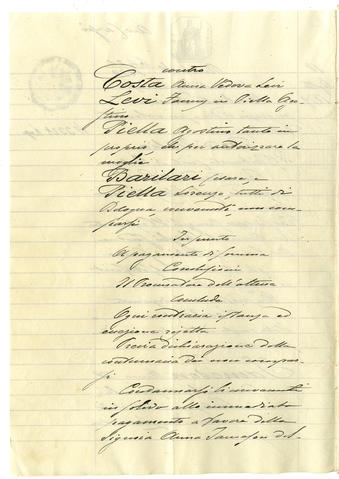 contro
Costa Anna Vedova Levi
Levi Fanny in Piella Ago-
stino
Piella Agostino tanto in
proprio, che per autorizzare la
moglie
Barilari Cesare, e
Piella Lorenzo tutti di
Bologna, convenuti, non com-
parsi
In punto
Di pagamento di somma
Conclusioni
Il Procuratore dell'attrice
Conclude
Ogni contraria istanza ed
eccezione rejetta
Previa dichiarazione della
contumacia dei non compar-
si
Condannarsi li convenuti
in solido allo immediato
pagamento a favore della
Signora Anna del-